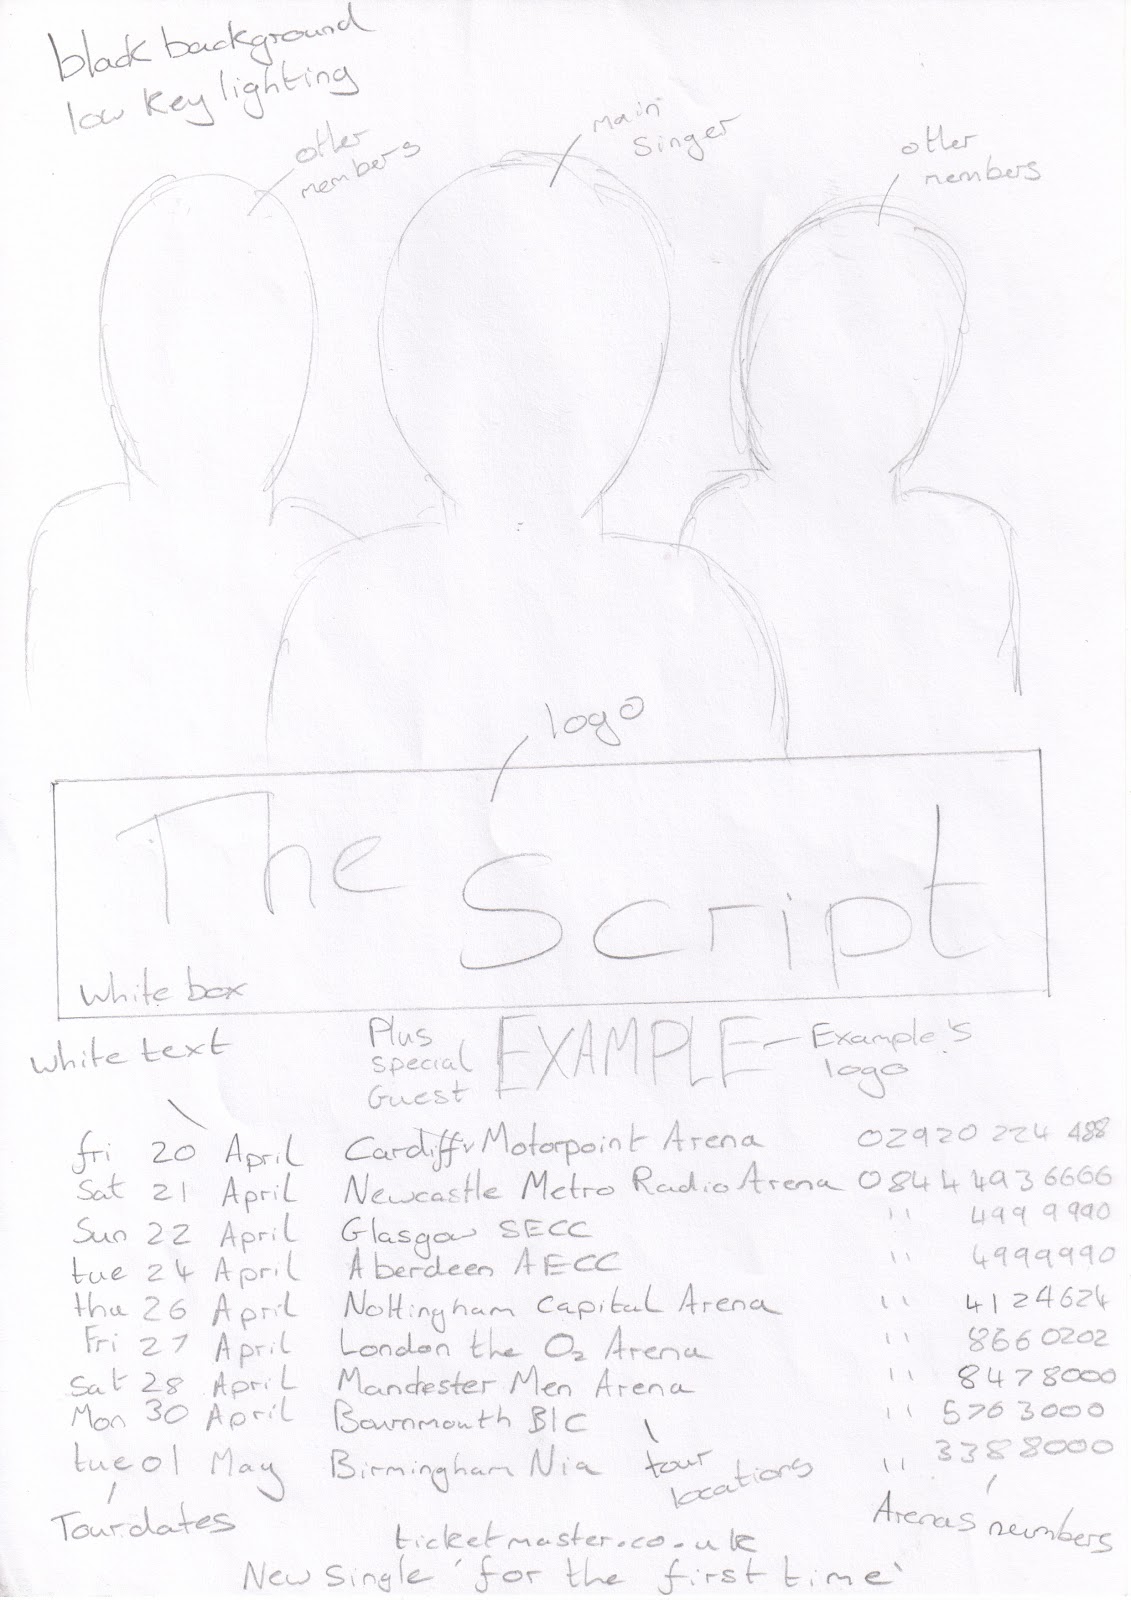 black background
low key lighting
other
members
main
singer
other
members
logo
The Script
white box
white text
Plus
special
Guest
EXAMPLE
Example's
logo
fri 20 April Cardiff Motorpoint Arena 02920 224 488
Sat 21 April Newcastle Metro Radio Arena 0844 4936666
Sun 22 April Glasgow SECC " 4999990
tue 24 April Aberdeen AECC " 4999990
thu 26 April Nottingham Capital Arena " 4124624
Fri 27 April London the O2 Arena " 8660202
Sat 28 April Manchester Men Arena " 8478000
Mon 30 April Bournmouth BIC " 5763000
tue 01 May Birmingham Nia " 3388000
tour
locations
Tour dates
Arenas numbers
ticketmaster.co.uk
New single 'for the first time'